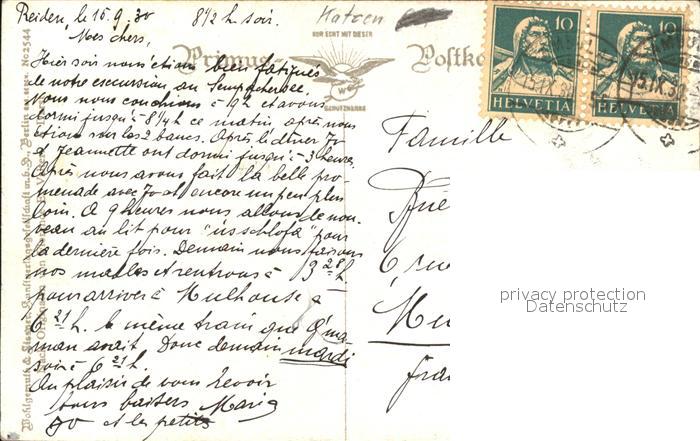 Reiden, le 15.9.30 8 1/2 h. soir.
Mes chers,
Hier soir nous étions bien fatigués
de notre excursion au Sempchersee.
Nous nous couchions à 9 h et avons
dormi jusqu'à 8 1/4 h ce matin, après nous
étions sur les 2 bancs. Après le dîner Jo
et Jeannette ont dormi jusqu'à 3 heures.
Après nous avons fait la belle pro
menade avec Jo et encore un peu plus
loin. A 9 heures nous allons de nou-
veau au lit pour "üsschlofa" pour
la dernière fois. Demain nous faisons
nos malles et rentrons à 3 28 h.
pour arriver à Mulhouse à
6 21 h. le même train que
man avait. Donc demain mardi
soir à 6 21 h.
Au plaisir de vous revoir
bons baisers Maria
Jo et les petits
Katzen
NUR ECHT MIT DIESER
Primus-
Postka
W
SCHUTZMARKE
10
HELVETIA
10
HELVETIA
15.IX.30
Famille
6, rue
Mu
fra
privacy protection
Datenschutz
No 2544